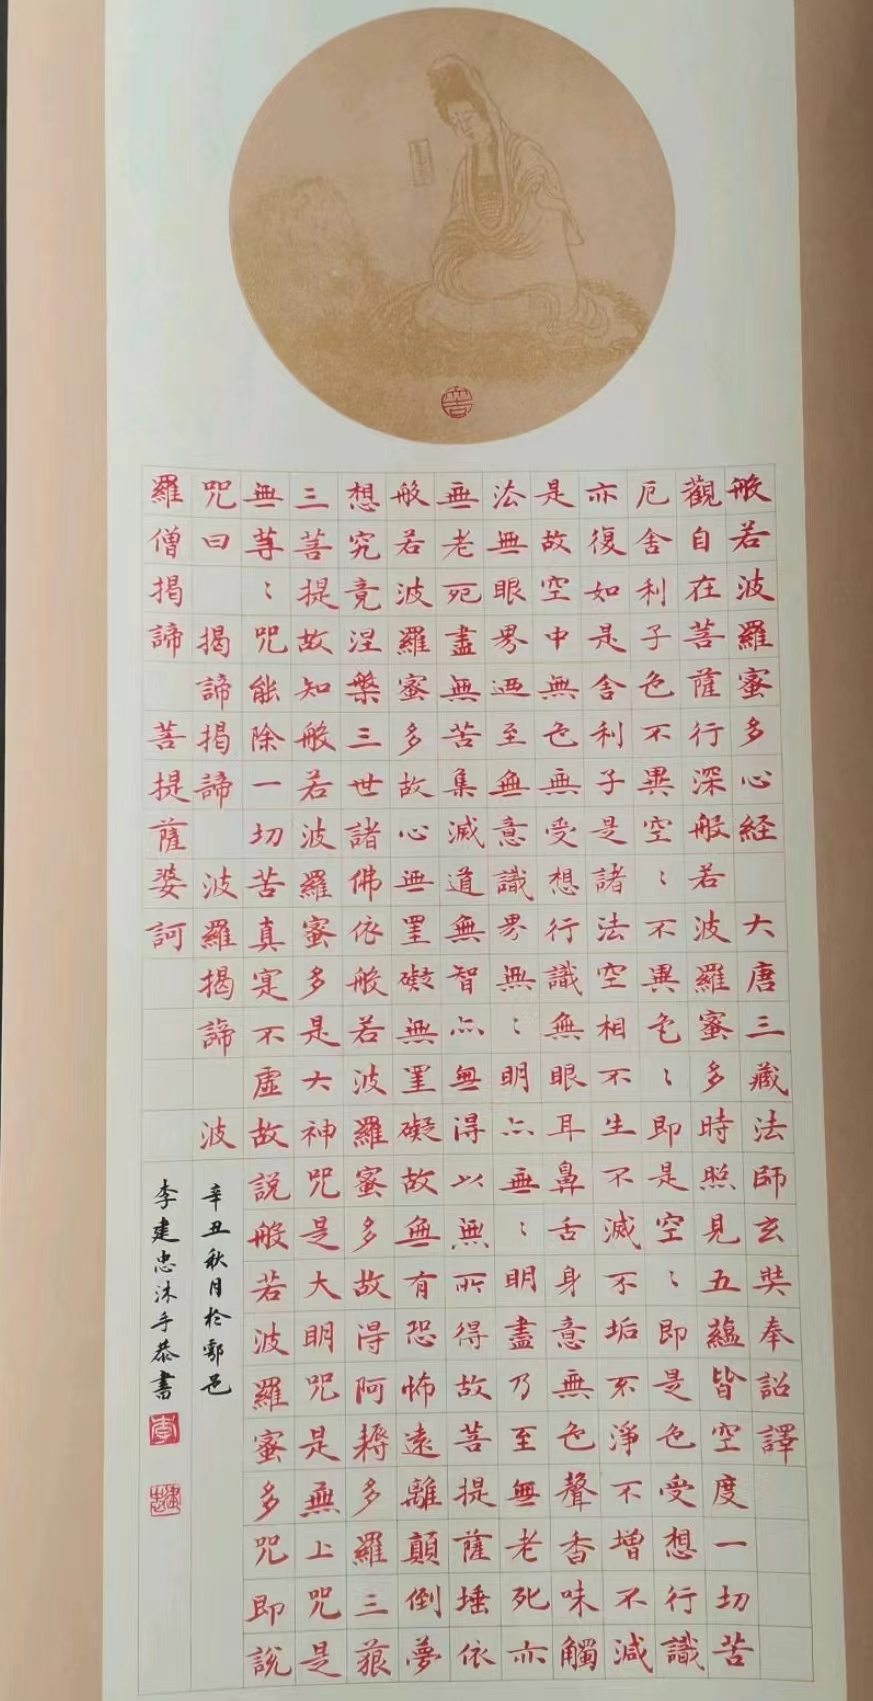 般若波羅蜜多心経 大唐三藏法師玄奘奉詔譯
觀自在菩薩行深般若波羅蜜多時照見五蘊皆空度一切苦
厄舍利子色不異空〻不異色〻即是空〻即是色受想行識
亦復如是舍利子是諸法空相不生不滅不垢不淨不增不減
是故空中無色無受想行識無眼耳鼻舌身意無色聲香味觸
法無眼界迺至無意識界無〻明亦無〻明盡乃至無老死亦
無老死盡無苦集滅道無智亦無得以無所得故菩提薩埵依
般若波羅蜜多故心無罣礙無罣礙故無有恐怖遠離顛倒夢
想究竟涅槃三世諸佛依般若波羅蜜多故得阿耨多羅三藐
三菩提故知般若波羅蜜多是大神咒是大明咒是無上咒是
無等〻咒能除一切苦真寔不虛故說般若波羅蜜多咒即說
咒曰 揭諦揭諦 波羅揭諦 波
羅僧揭諦 菩提薩婆訶
辛丑秋月於鄠邑
李建忠沐手恭書